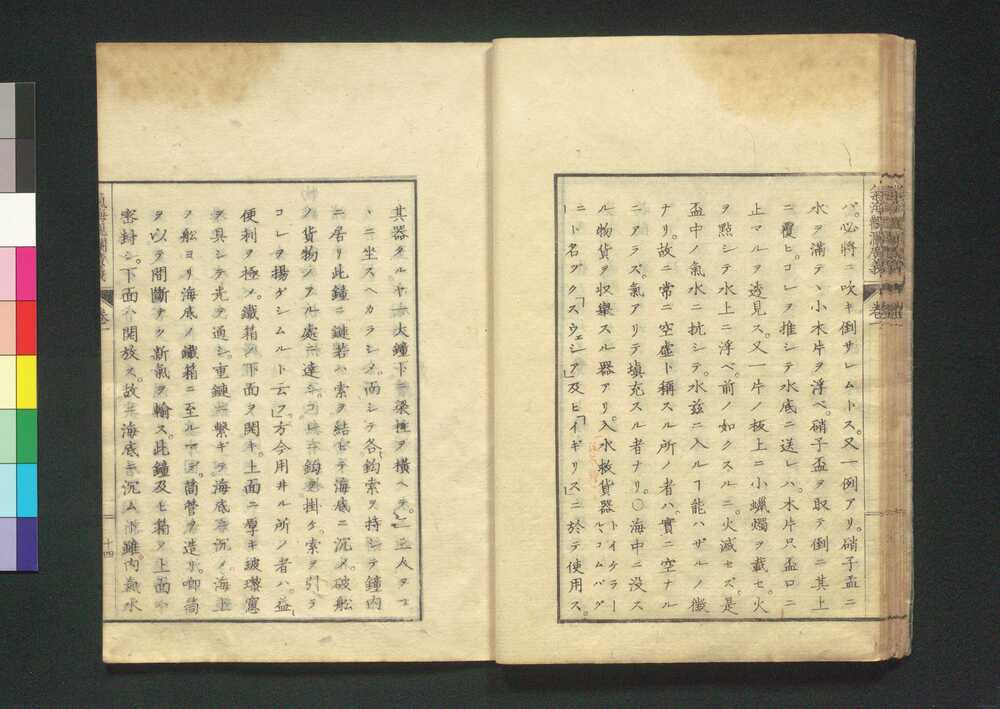 バ。必將ニ吹キ倒サレムトス。又一例アリ。硝子盃ニ
水ヲ滿テヽ小木片ヲ浮ベ。硝子盃ヲ取テ倒ニ其上
ニ覆ヒ。コレヲ推シテ水底ニ送レハ。木片只盃口ニ
止マルヲ透見ス。又一片ノ板上ニ小蠟燭ヲ載セ。火
ヲ點シテ水上ニ浮ベ。前ノ如クスルニ。火滅セズ。是
盃中ノ氣水ニ抗シテ。水玆ニ入ルヿ能ハザルノ徴
ナリ。故ニ常ニ空虚ト稱スル所ノ者ハ。實ニ空ナル
ニアラズ。氣アリテ填充スル者ナリ。〇海中ニ没ス
ル物貨ヲ収擧スル器アリ。入水救貨器
ト名グ「クスウェシア」及ヒ「イギリス」ニ於テ使用ス。
其器タルヤ一大鐘下ニ梁柱ヲ橫ヘテ。二三人ヲコ
ヽニ坐スヘカラシメ。而シテ各鈎索ヲ持シテ鐘内
ニ居リ此鐘ニ鏈若ハ索ヲ結ビテ海底ニ沉メ。破舩
ノ貨物ノアル處ニ達シ。コレニ鈎ヲ掛ケ。索ヲ引テ
コレヲ揚ゲシムルト云フ。方今用井ル所ノ者ハ。益
便利ヲ極メ。鐵箱ノ下面ヲ開キ。上面ニ厚キ玻瓈窓
ヲ具シテ光ヲ通シ。重鏈ニ繫ギテ海底ニ沉メ。海上
ノ舩ヨリ海底ノ鐵箱ニ至ルマデ。筒管ヲ造リ。喞筒
ヲ以テ間斷ナク新氣ヲ輸ス。此鐘及ヒ箱ハ上面ハ
密封シ。下面ハ開放ス。故ニ海底ニ沉ムト雖内氣水
十四